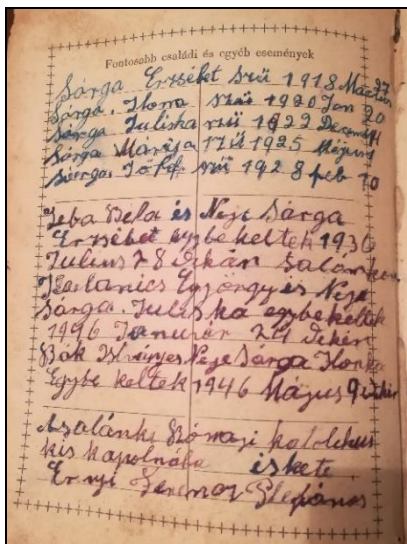 Fontosabb családi és egyéb események
Sárga Erzsébet szü 1918 Márc 27
Sárga Ilona szü 1920 Jan 20
Sárga Juliska szü 1922 December
Sárga Márija szü 1925 Május
Sárga Jósef szü 1928 feb 10
Zeba Bela és Neje Sárga
Erzsébet egybe keltek 1936
Julius 28 dikán Salánkon
György és Neje
Sárga Juliska egybe keltek
1946 Januzár 24 dekén
Bák István és Neje Sárga Ilonka
Egybe keltek 1946 Május 9
A salánki Római katolikus
kis kápolnába esküte
Ferencz Plépános